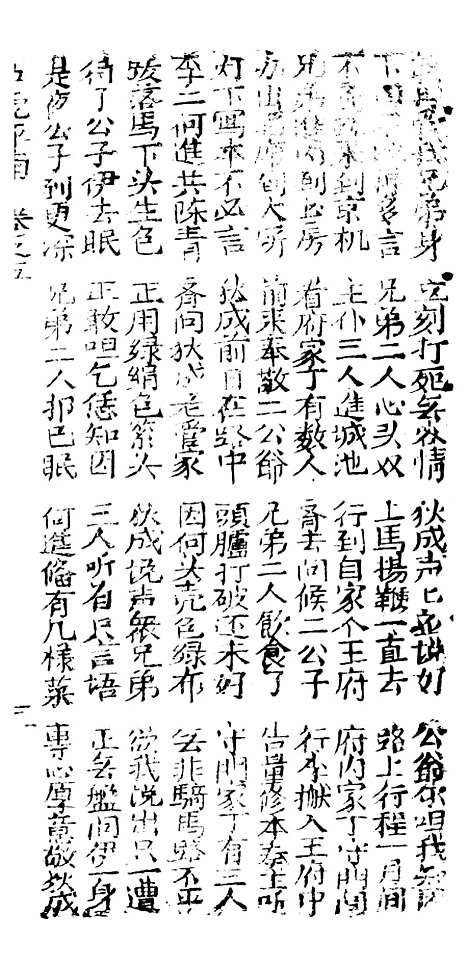 我兄弟身 立刻打死無容情 狄成声〻 好 公爺 唱我知
下 言 兄弟二人心头奴 上馬揚鞭一直去 路上行程一月间
不 來到京机 主仆三人進城池 行到自家个王府 府内家丁守門
兄弟進内到書房 看府家丁有数人 齊去问候二公子 行李搬入王府中
办出 前來奉敬二公爺 兄弟二人飲食了 告量修本奏
灯下寫本不必言 狄成前日在路中 頭臚打破还未好 守門家丁有三人
李二何進共陈青 齊问狄成老管家 因何头壳包绿布 莫非騎馬路不平
跋落馬下头生包 正用绿綃包 头 狄成说声 兄弟 欲我说出只一遭
待了公子伊去眠 正敢呾乞恁知因 三人听有只言语 正無盤问伊一身
是夜公子到更深 兄弟二人都已眠 何進俻有几様菜 專心厚意敬狄成
五虎平南 卷之五